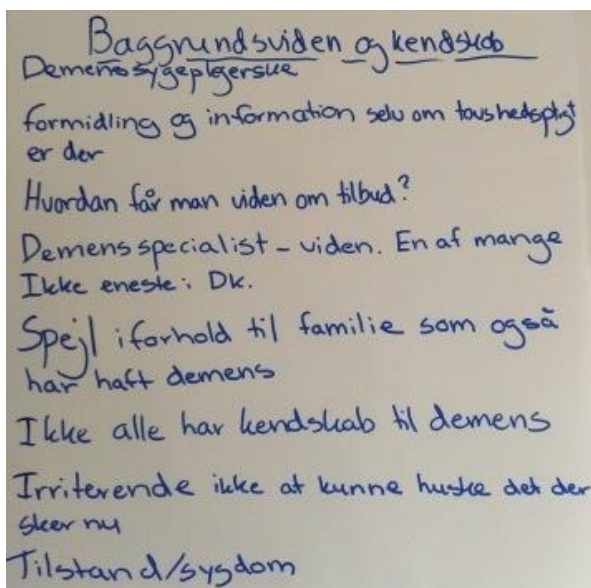 Baggrundsviden og kendskab
Demenssygeplejerske
formidling og information selv om taushedspligt
er der
Hvordan får man viden om tilbud?
Demensspecialist - viden. En af mange
Ikke eneste i Dk.
Spejl i forhold til familie som også
har haft demens
Ikke alle har kendskab til demens
Irriterende ikke at kunne huske det der
sker nu
Tilstand/sygdom